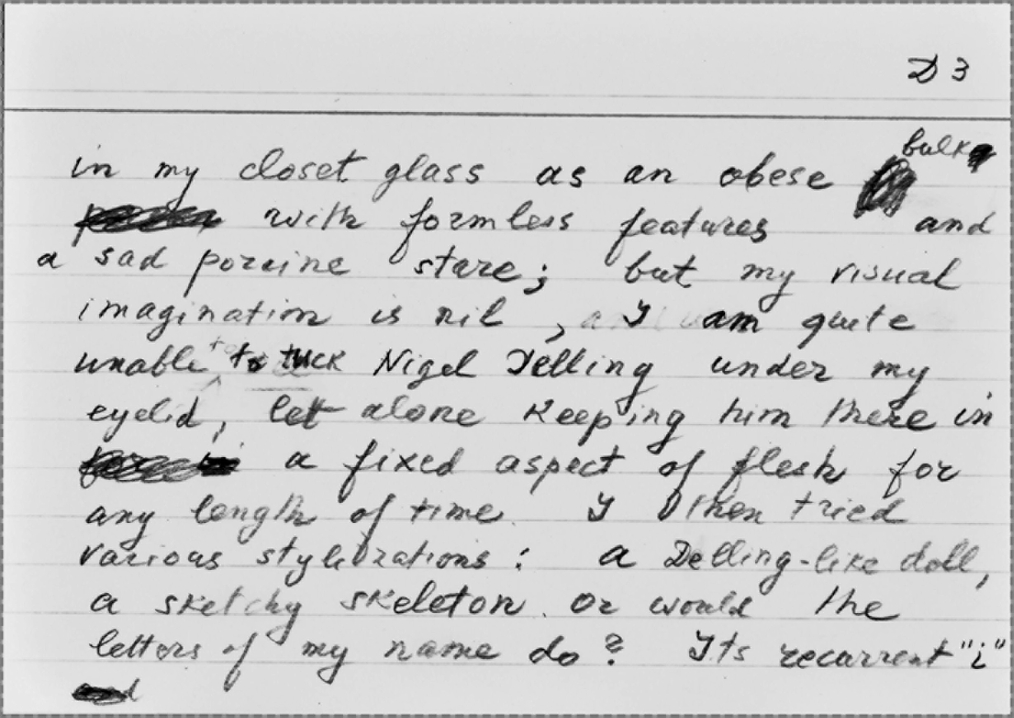 D 3
bulk
in my closet glass as an obese
with formless features and
a sad porcine stare; but my visual
imagination is nil, I am quite
unable to tuck Nigel Delling under my
eyelid, let alone keeping him there in
a fixed aspect of flesh for
any length of time. I then tried
various stylizations: a Delling-like doll,
a sketchy skeleton. Or would the
letters of my name do? Its recurrent "i"